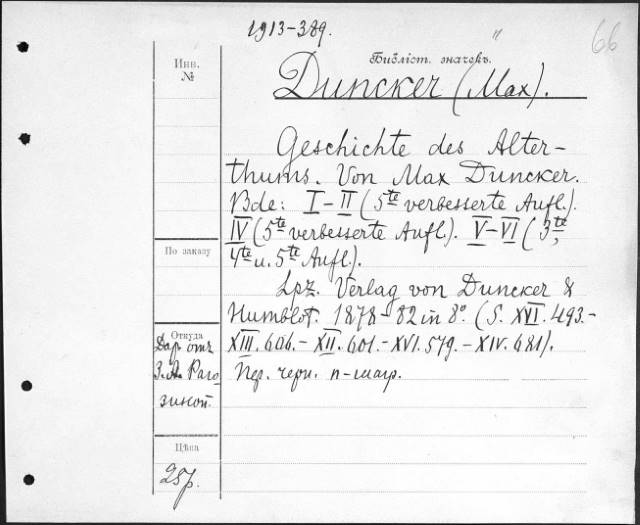 1913-389.
66
Библіот. значекъ.
Инв.
№
Duncker (Max).
Geschichte des Alter-
thums. Von Max Duncker.
Bde: I-II (5te verbesserte Aufl.).
IV (5te verbesserte Aufl.). V-VI (3te,
4te u. 5te Aufl.).
По заказу
Lpz. Verlag von Duncker &
Humblot. 1878-82 in 8º. (S. XVI.493.-
XIII.606.- XII.601.- XVI.579.- XIV.681).
Пер. черн. п-шагр.
Откуда
Дар отъ
З.А. Раго
зиной.
Цѣна
25р.